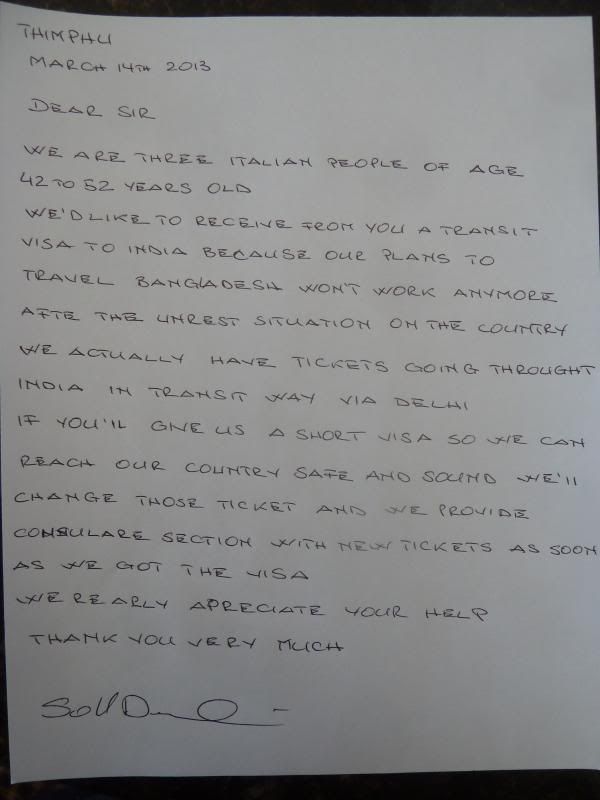 THIMPHU
MARCH 14TH 2013
DEAR SIR
WE ARE THREE ITALIAN PEOPLE OF AGE
42 TO 52 YEARS OLD
WE'D LIKE TO RECEIVE FROM YOU A TRANSIT
VISA TO INDIA BECAUSE OUR PLANS TO
TRAVEL BANGLADESH WON'T WORK ANYMORE
AFTE THE UNREST SITUATION ON THE COUNTRY
WE ACTUALLY HAVE TICKETS GOING THROUGHT
INDIA IN TRANSIT WAY VIA DELHI
IF YOU'LL GIVE US A SHORT VISA SO WE CAN
REACH OUR COUNTRY SAFE AND SOUND WE'LL
CHANGE THOSE TICKET AND WE PROVIDE
CONSULARE SECTION WITH NEW TICKETS AS SOON
AS WE GOT THE VISA
WE REARLY APRECIATE YOUR HELP
THANK YOU VERY MUCH